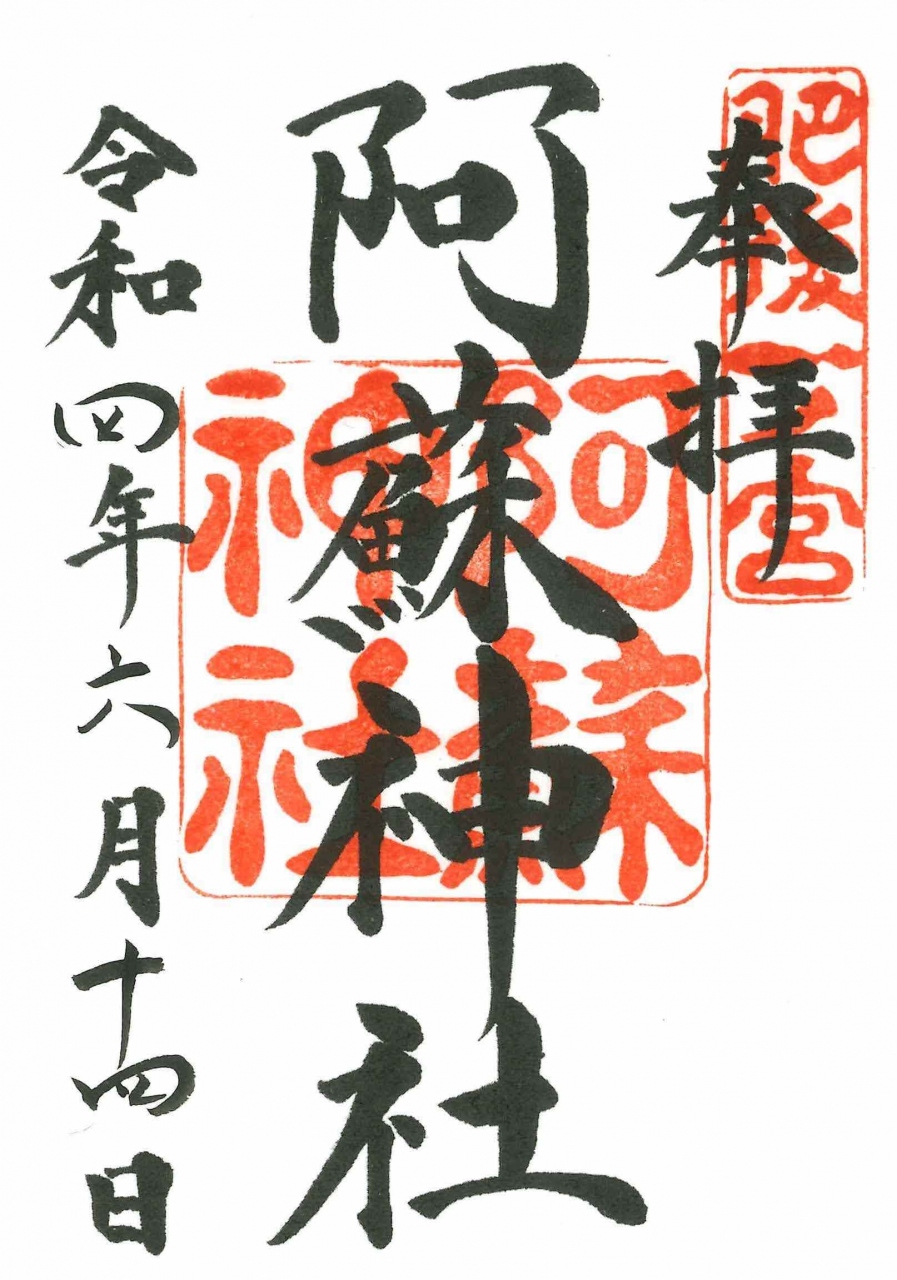 奉拝
肥後一之宮
阿蘇神社
阿蘇
神社
令和四年六月十四日